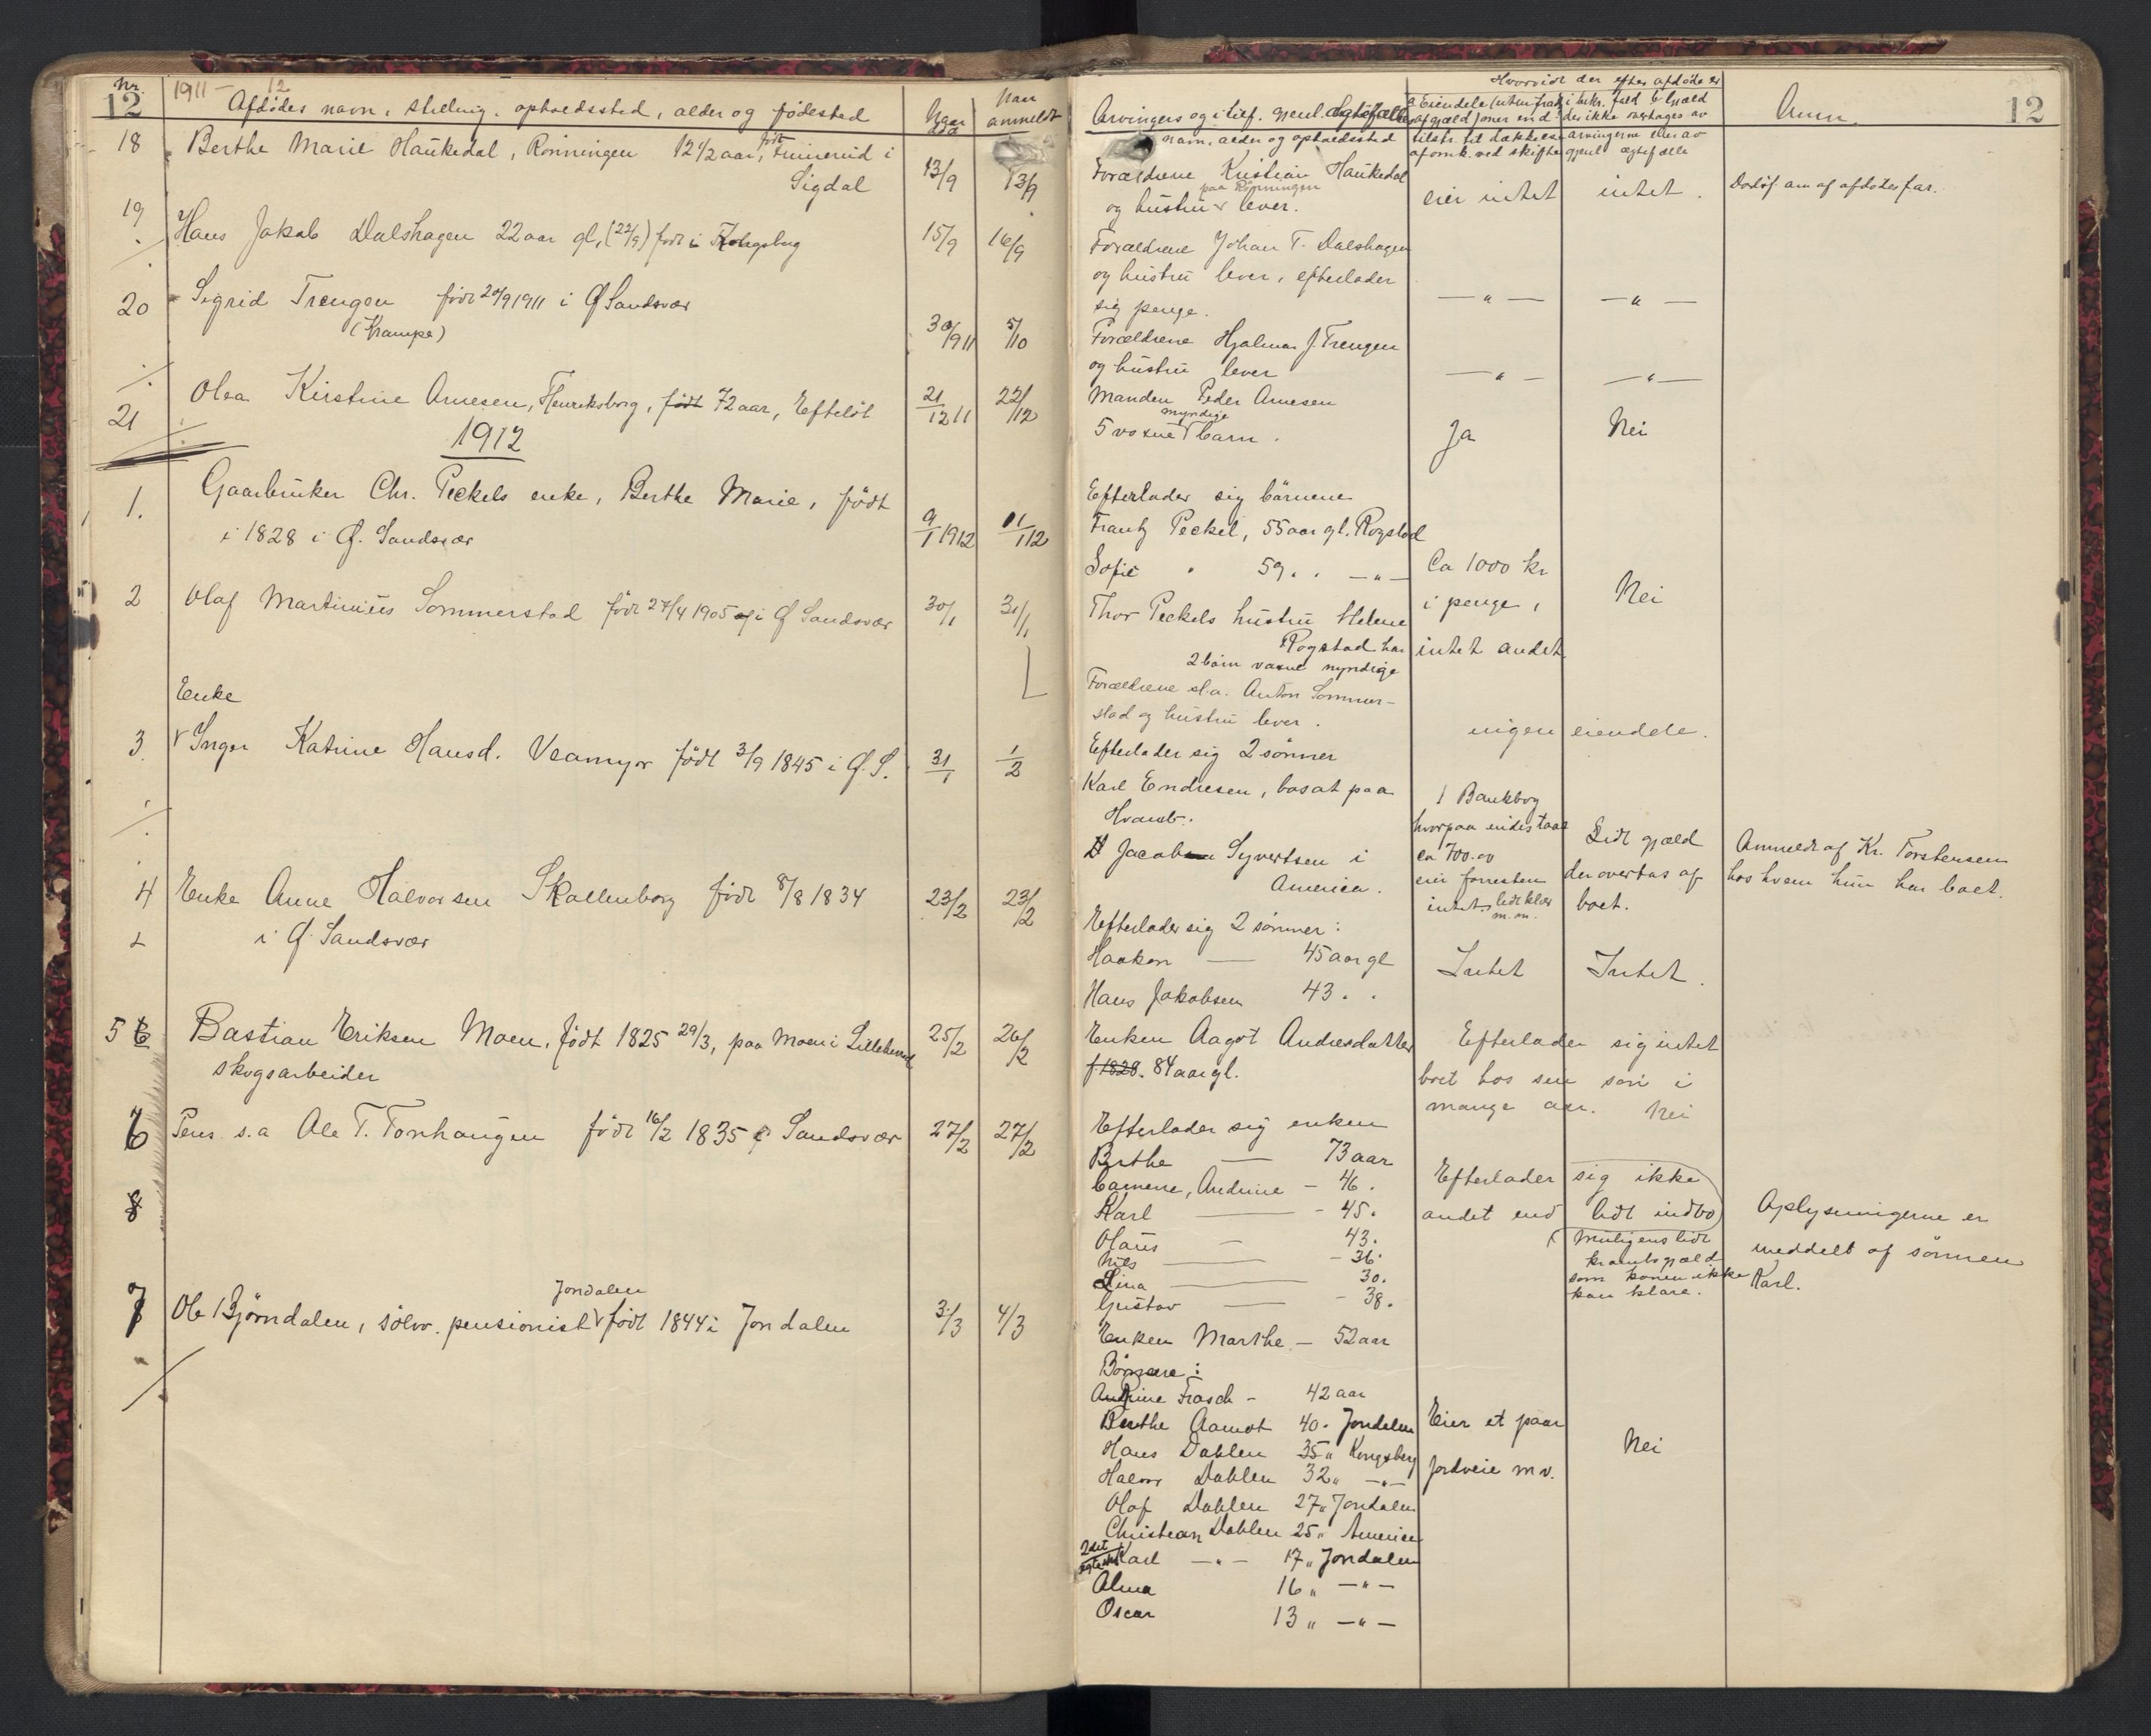 Nr.
12
1911 – 12
Afdødes navn, stilling, opholdssted, alder og fødested
Naar død
Naar anmeldt
18 Berthe Marie Haukedal, Rønningen 12 1/2 aar, født i
Sigdal 13/9 13/9
19 Hans Jakob Dalshagen 22 aar gl, (22/9) født i Kongsberg 15/9 16/9
20 Sigrid Trengen født 20/9 1911 i Ø Sandsvær
(Krampe) 30/9 11 5/10
21 Olea Kirstine Arnesen, Henriksborg, født 72 aar, Efteløt 21/12 11 22/12
1912
1. Gaarbruker Chr. Peckels enke, Berthe Marie, født
i 1828 i Ø. Sandsvær 9/1 1912 11/1 12
2 Olaf Martinius Sommerstad født 27/4 1905 i Ø Sandsvær 30/1 31/1
Enke
3 Inger Katrine Hansd. Veamyr født 3/9 1845 i Ø. S. 31/1 1/2
4 Enke Anne Halvorsen Skallenborg født 8/8 1834 23/2 23/2
i Ø. Sandsvær
5 6 Bastian Eriksen Moen, født 1825 29/3, paa Moen i 25/2 26/2
skogsarbeider
6 Pens. s.a Ole T. Tonhaugen født 16/2 1835 Ø Sandsvær 27/2 27/2
8
Jondalen
7 Ole Bjørndalen, sølvv. pensionist født 1844 i Jondalen 3/3 4/3
12
Hvorvidt der efter afdøde er
Arvingers og i tilf. gjenl. ægtefælles
navn, alder og opholdssted
a Eiendele
b Gjæld
der ikke overtages av
arvingerne eller av
gjenl. ægtefælle
Anm.
Forældrene Kristian Haukedal
paa Rønningen
og hustru lever. eier intet intet. Dødsf. anm af afdødes far.
Forældrene Johan T. Dalshagen
og hustru lever, efterlader
sig penge. — " — — " —
Forældrene Hjalmar J. Trengen
og hustru lever — " — — " —
Manden Peder Arnesen
myndige
5 voxne barn. Ja Nei
Efterlader sig børnene
Frantz Peckel, 55 aar gl. Rogstad
Sofie " 59 . . — " — Ca 1000 kr
Thor Peckels hustru Helene i penge, Nei
Rogstad har intet andet.
2 børn voxne myndige
Forældrene sl.a. Anton Sommer-
stad og hustru lever. ingen eiendele.
Efterlader sig 2 sønner
Karl Endresen, bosat paa 1 Bankbog
Hvamb. hvorpaa indestaar
Jacob Syvertsen i ca 700.00 Lidt gjæld Anmeldt af Kr. Torstensen
America. eier forresten der overtas af hos hvem hun har boet.
intet. lidt klær m.m. boet.
Efterlader sig 2 sønner:
Haakon — 45 aar gl Intet Intet.
Hans Jakobsen 43 . .
Enken Aagot Andresdatter Efterlader sig intet
f. 1828. 84 aar gl. boet hos sin søn i
mange aar. Nei
Efterlader sig enken
Berthe — 73 aar Efterlader sig ikke
børnene, Andrine – 46 . andet end lidt indbo
Karl — – 45 . Oplysningerne er
Olaus — 43 . (muligens lidt
Nils — – 36 . krambogjæld meddelt af sønnen
Lina — 30 . som konen ikke Karl.
Gustav — – 38 . kan klare.
Enken Marthe – 52 aar
Børnene:
Andrine Frasch – 42 aar
Berthe Aamot 40 . Jondalen Eier et paar
Hans Dahlen 35 " Kongsberg Nei
Halvor Dahlen 32 " — " — jordveie m v.
Olaf Dahlen 27 " Jondalen
Christian Dahlen 25 " America
2det
Karl — " — 17 " Jondalen
Alma 16 " — " —
Oscar 13 " — " —